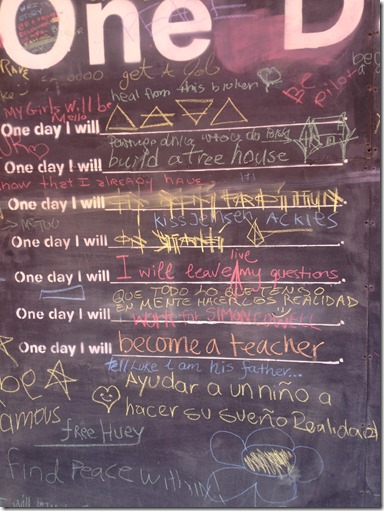 One D
RARE
get a Job
heal from this broken
Be a Pilot
My Girls will be
One day I will
One day I will build a tree house
know that I already have
One day I will
KISS JENSEN ACKLES
One day I will
live
One day I will I will leave my questions
QUE TODO LO QUE TENGO
EN MENTE HACERLOS REALIDAD
One day I will WORK FOR SIMON COWELL
One day I will become a teacher
tell Luke i am his father...
be A
famous
Ayudar a un niño a
hacer su sueño Realidad
free Huey
find Peace within